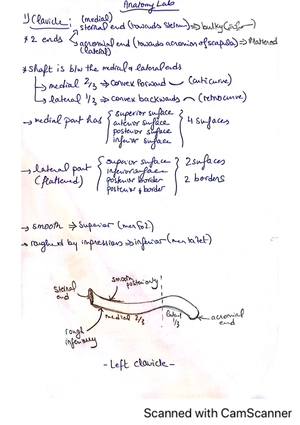 Anatomy Lab
1) Clavicle:
* 2 ends
(medial)
sternal end (towards sternum) => bulky
acromial end (towards acromion of scapula) => flattened
(lateral)
* Shaft is b/w the medial & lateral ends
→ medial 2/3 → convex forward
→ lateral 1/3 → convex backwards (retrocurve)
→ medial part has
superior surface
anterior surface
posterior surface
inferior surface
4 surfaces
→ lateral part
(flattened)
superior surface
inferior surface
posterior border
border
2 surfaces
2 borders
→ smooth => Superior
→ roughened by impressions => inferior
Sternal
end
smooth
medial 2/3
lateral
1/3
acromial
end
rough
inferiorly
- Left clavicle -
Scanned with CamScanner